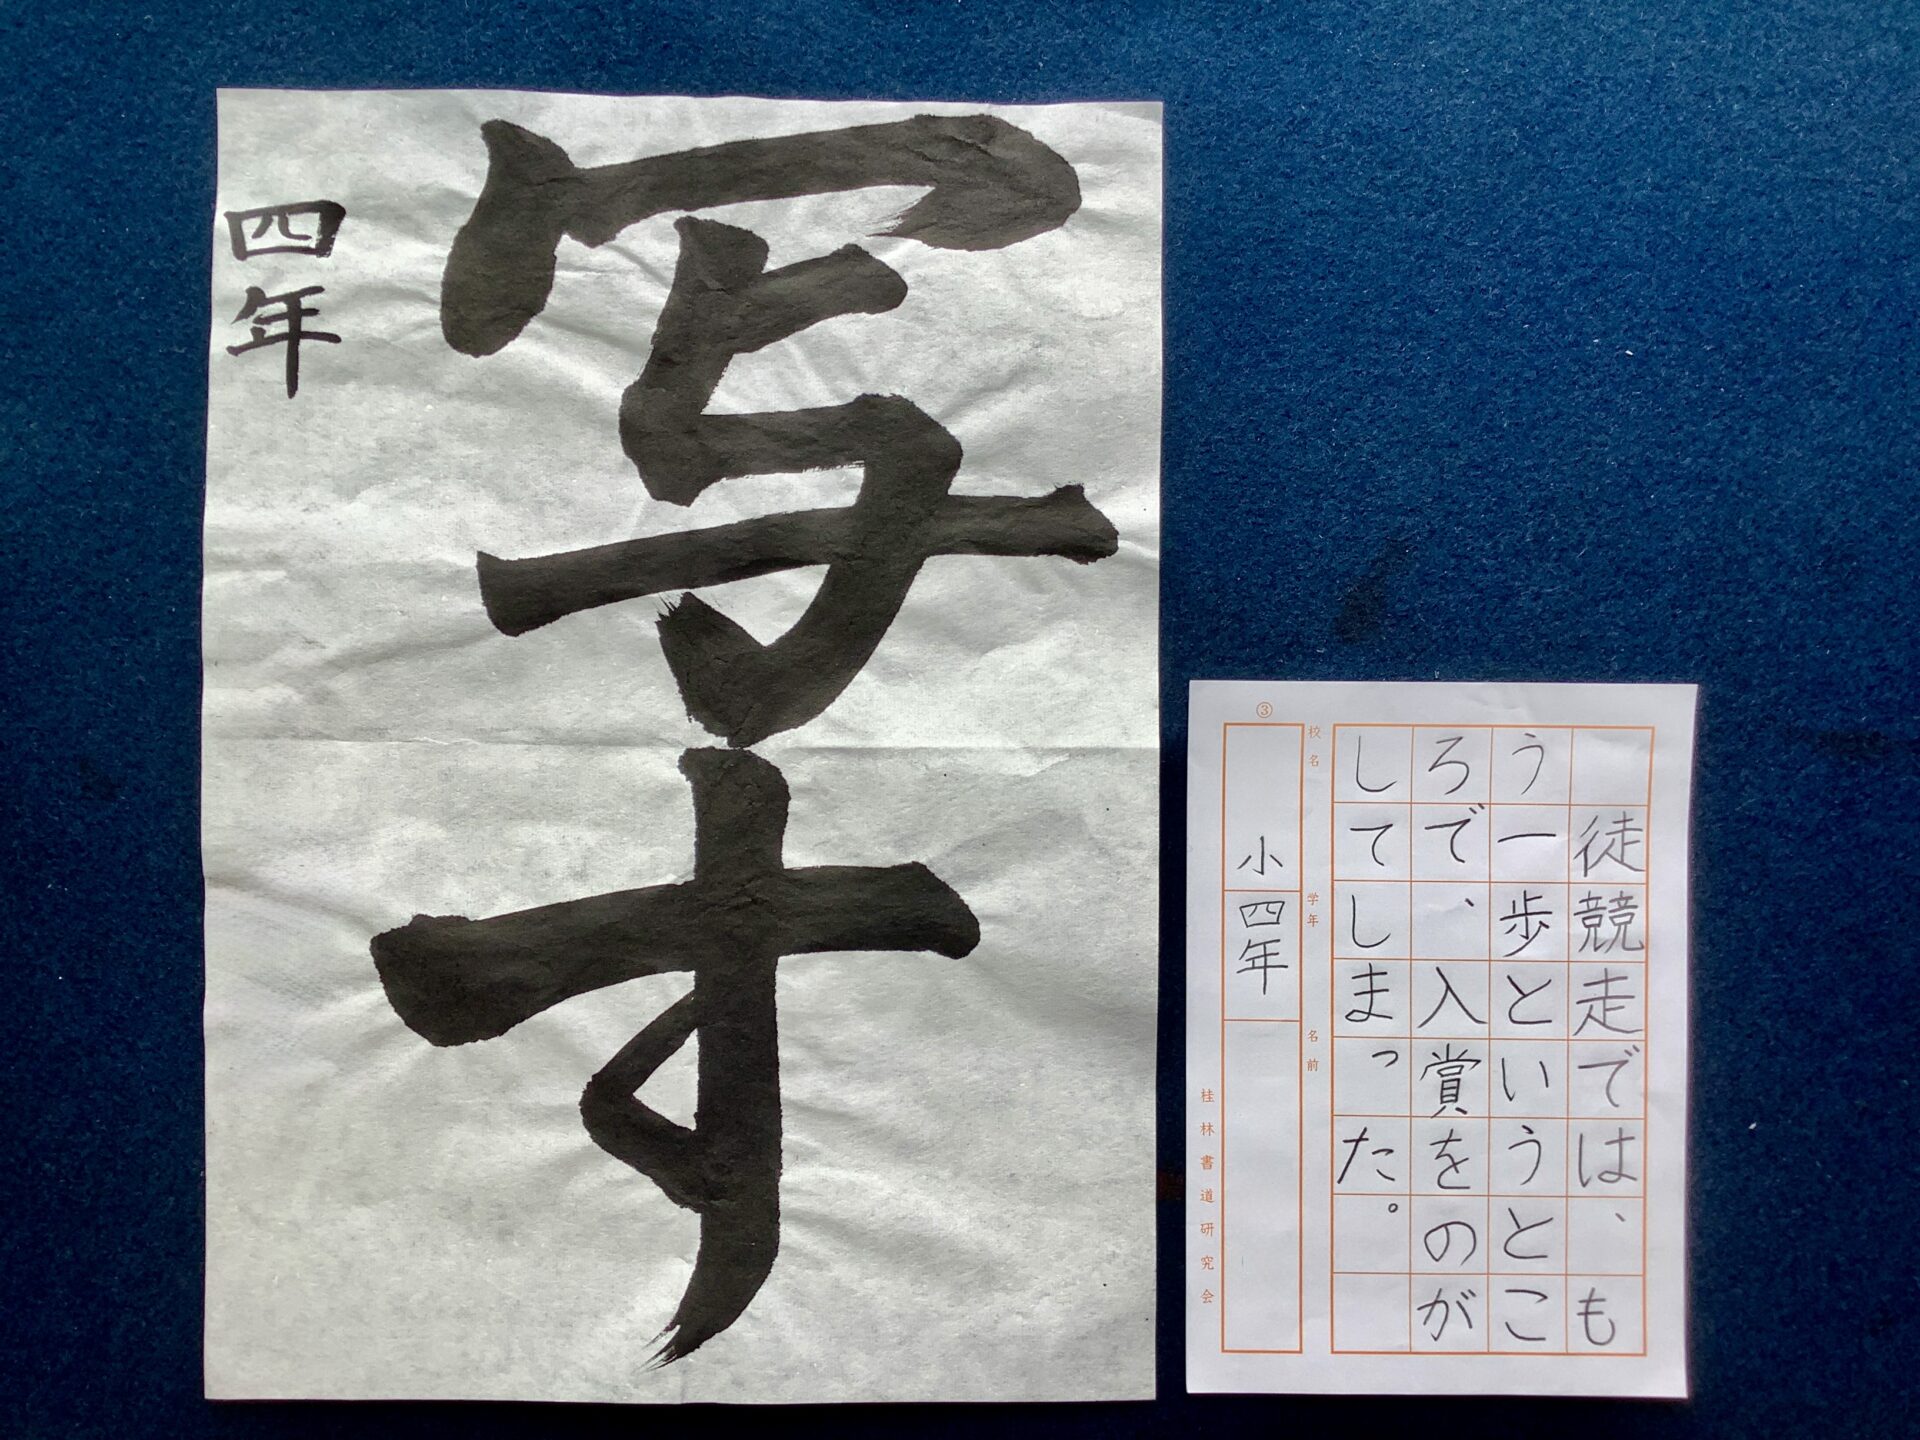 写す
四年
③
徒競走では、も
う一歩というとこ
ろで、入賞をのが
してしまった。
校名
小
学年
四年
名前
桂林書道研究会